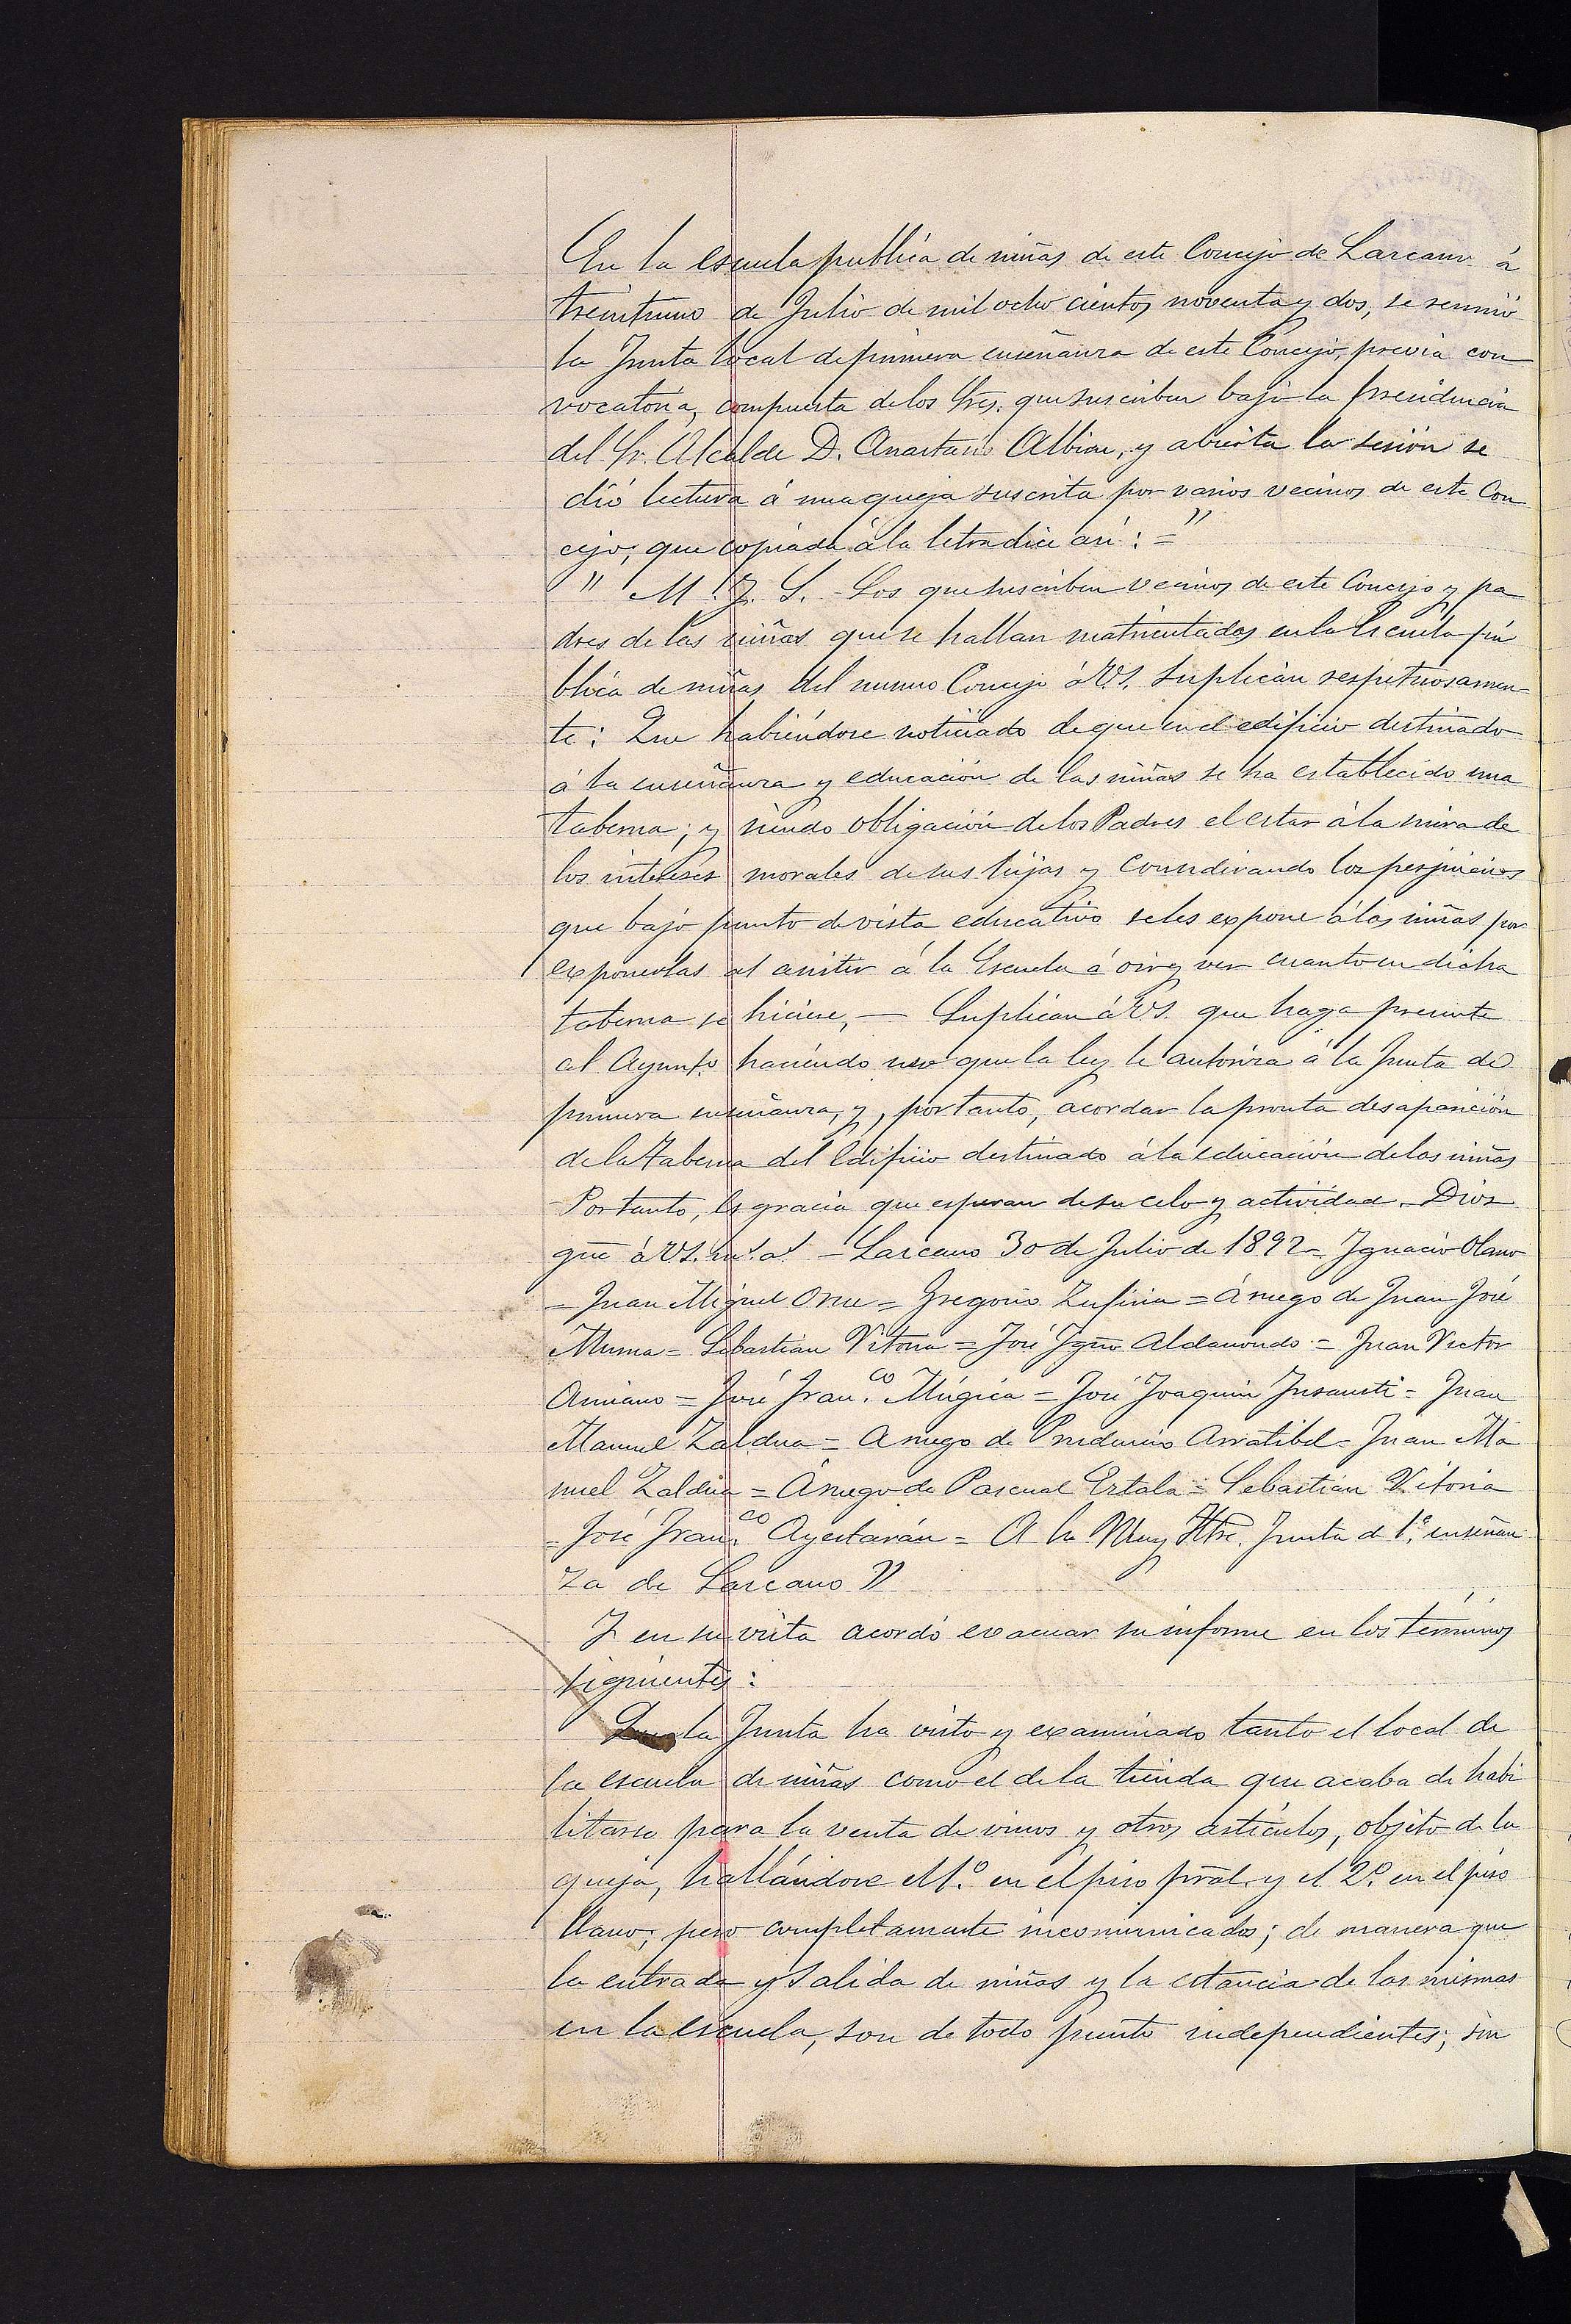 En la escuela publica de niñas de este Concejo de Lazcano á
treintiuno de Julio de mil ocho cientos noventa y dos, se reunió
la Junta local de primera enseñanza de este Concejo, previa con
vocatoria, compuesta de los Sres. que suscriben bajo la presidencia
del Sr. Alcalde D. Anastasio Albiau, y abierta la sesión se
dió lectura á una queja suscrita por varios vecinos de este Con
cejo, que copiada á la letra dice asi: = "
" M. I. S. Los que suscriben vecinos de este Concejo y pa
dres de las niñas que se hallan matriculadas en la Escuela pú
blica de niñas del mismo Concejo á V.S. suplican respetuosamen-
te: Que habiéndose noticiado de que en el edificio destinado
á la enseñanza y educación de las niñas se ha establecido una
taberna; y siendo obligación de los Padres el estar á la mira de
los intereses morales de sus hijas y considerando los perjuicios
que bajo punto de vista educativo se les expone á las niñas por
exponerlas al asistir á la Escuela á oir y ver cuanto en dicha
taberna se hiciese, — Suplican á V.S. que haga presente
al Ayunto. haciendo uso que la ley le autoriza á la Junta de
primera enseñanza, y, por tanto, acordar la pronta desaparición
de la taberna del edificio destinado á la educación de las niñas
Por tanto, es gracia que esperan de su celo y actividad. Dios
gue á V.S. ms. as. - Lazcano 30 de Julio de 1892 = Ignacio Olano
= Juan Miguel = Gregorio Zufiria = Á ruego de Juan José
Munoa = Sebastian Vitoria = José Igno Aldamondo = Juan Victor
Amiano = José Franco. Múgica = José Joaquin Insausti = Juan
Manuel Zaldua = A ruego de Prudencio Arratibel = Juan Ma
nuel Zaldua = Á ruego de Pascual Estala = Sebastian Vitoria
= José Franco. Ayestarán = A la Muy Iltre. Junta de 1ª. enseñan
za de Lazcano "
Y en su vista acordó evacuar su informe en los términos
siguientes:
Que la Junta ha visto y examinado tanto el local de
la escuela de niñas como el de la tienda que acaba de habi
litarse para la venta de vinos y otros artículos, objeto de la
queja, hallándose el 1.º en el piso pral. y el 2.º en el piso
llano; pero completamente incomunicados; de manera que
la entrada y salida de niñas y la estancia de las mismas
en la escuela, son de todo punto independientes; sin